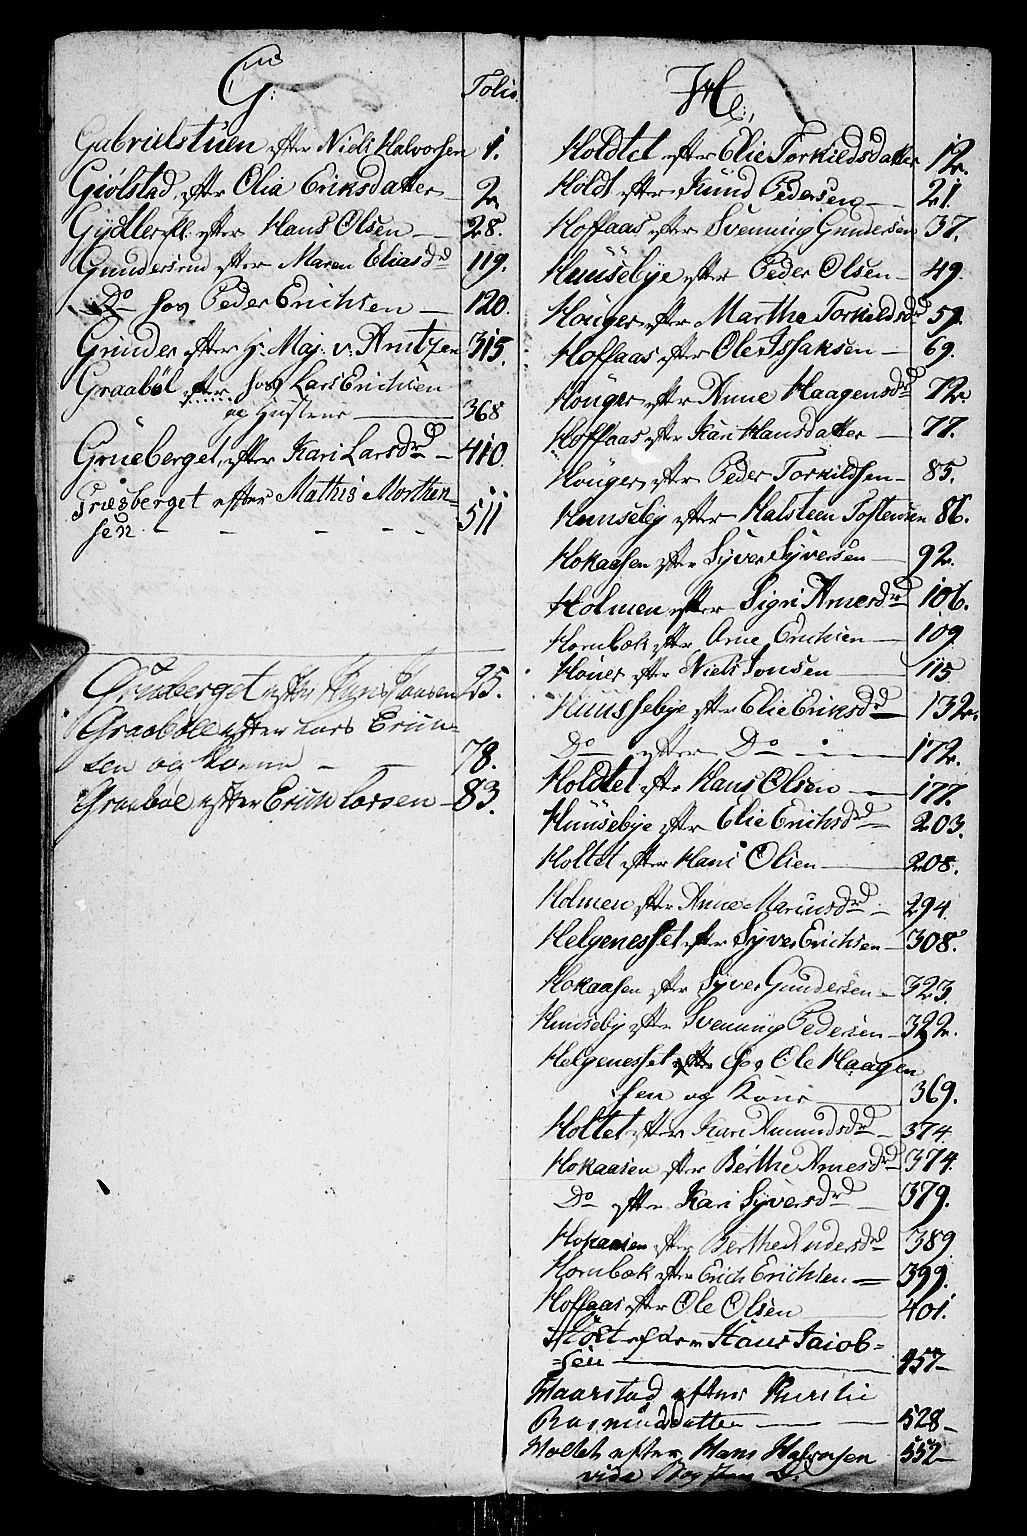 G:
Folio
Gabrielstuen efter Niels Halvorsen 1.
Giölstad efter Olia Eriksdatter 2.
Gydler efter Hans Olsen 28.
Gundersrud efter Maren Eliasdr 119.
Do hos Peder Erichsen 120.
Grinder efter Hr Maj. v. Arntzen 315.
Graaböl efter hos Lars Erichsen
og Hustrue 368
Grueberget efter Kari Larsdr 410.
Griesberget efter Mathis Morthen-
sen 511
Grueberget efter Hans Hansen 25.
Graaböll efter Lars Erich-
sen og Kone 78.
Graaböl efter Erich Larsen 83.
H:
Holdtet efter Elie Torkildsdatter 12.
Holdt efter Knud Pedersen 21.
Hoffaas efter Svenning Gundersen 37.
Huusebye efter Peder Olsen 49.
Houger efter Marthe Torkildsdr 59.
Hoffaas efter Ole Issaksen 69.
Houger efter Anne Haagensdr 72.
Hoffaas efter Kari Hansdatter 77.
Houger efter Peder Torkildsen 85.
Huuseby efter Halsteen Tostensen 86.
Hokaasen efter Syver Syversen 92.
Holmen efter Sigri Arnesdr 106.
Hornbæk efter Arne Erichsen 109
Houer efter Niels Jonsen 115
Huussebye efter Elie Eriksdr 132.
Do efter Do 172.
Holdtet efter Hans Olsen 177.
Huusebye efter Elie Erichsdr 203.
Holtet efter Hans Olsen 208.
Holmen efter Anne Mariusdr 294.
Helgenesset efter Syver Erichsen 308.
Hokaasen efter Syver Gundersen 323.
Huuseby efter Svenning Pedersen 322.
Helgenesset efter hos Ole Haagen
sen og Kone 369.
Holtet efter Kari Amundsdr 374.
Hokaasen efter Berthe Arnesdr 374.
Do efter Kari Syversdr 379.
Hokaasen efter Berthe Andersdr 389
Hornbæk efter Erich Erichsen 399.
Hoffaas efter Ole Olsen 401.
Holt efter Hans Jacob-
sen 457
Haarstad efter Kirstie
Rasmusdatter 528
Holtet efter Hans Halvorsen 552
vide D.